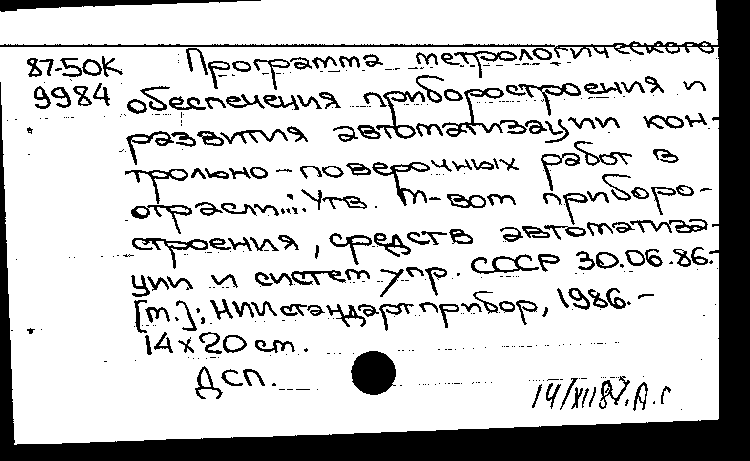 87-50К Программа метрологического
9984 обеспечения приборостроения и
развития автоматизации кон-
трольно-поверочных работ в
отрасли...: Утв. М-вом приборо-
строения, средств автоматиза-
ции и систем упр. СССР 30.06.86.-
[М.]; НИИстандартприбор, 1986.-
14x20 см.
ДСП.
14/XII87.